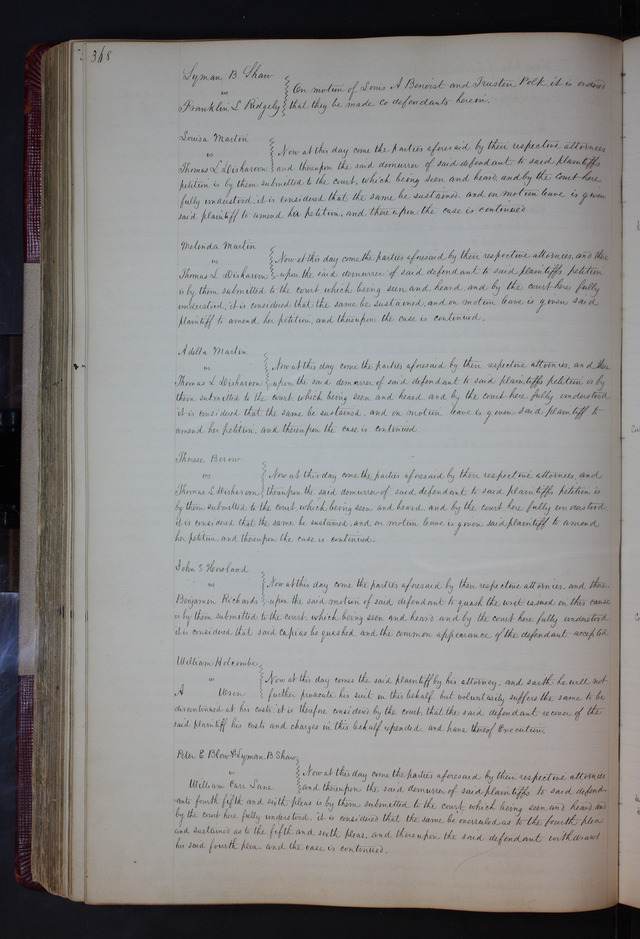 368
Lyman B Shaw
vs
Franklin L Ridgely
On motion of Louis A Benoist and Trusten Polk it is ordered
that they be made co defendants herein.
Louisa Martin
vs
Thomas L Disharoon
Now at this day come the parties aforesaid by their respective attornies
and thereupon the said demurrer of said defendant to said plaintiffs
petition is by them submitted to the court, which being seen and heard, and by the court here
fully understood, it is considered that the same be sustained, and on motion leave is given
said plaintiff to amend her petition, and thereupon the case is continued
Melinda Martin
vs
Thomas L Disharoon
Now at this day come the parties aforesaid by their respective attornies, and there
upon the said demurrer of said defendant to said plaintiffs petition
is by them submitted to the court which being seen and heard, and by the court here fully
understood, it is considered that the same be sustained, and on motion leave is given said
plaintiff to amend her petition, and thereupon the case is continued.
Adella Martin
vs
Thomas L Disharoon
Now at this day come the parties aforesaid by their respective attornies, and there
upon the said demurrer of said defendant to said plaintiffs petition is by
them submitted to the court, which being seen and heard, and by the court here fully understood
it is considered that the same be sustained, and on motion leave is given said plaintiff to
amend her petition, and thereupon the case is continued
Therese
vs
Thomas L Disharoon
Now at this day come the parties aforesaid by their respective attornies, and
thereupon the said demurrer of said defendant to said plaintiffs petition is
by them submitted to the court, which being seen and heard, and by the court here fully understood,
it is considered that the same be sustained, and on motion leave is given said plaintiff to amend
her petition, and thereupon the case is continued.
John S Howland
vs
Benjamin Richards
Now at this day come the parties aforesaid by their respective attornies, and there
upon the said motion of said defendant to quash the writ issued in this cause
is by them submitted to the court, which being seen and heard and by the court here fully understood
it is considered that said capias be quashed and the common appearance of the defendant accepted
William Holcombe
vs
A Wren
Now at this day comes the said plaintiff by his attorney, and saith he will not
further prosecute his suit in this behalf but voluntarily suffers the same to be
discontinued at his costs, it is therefore considered by the court, that the said defendant recover of the
said plaintiff his costs and charges in this behalf expended and have thereof Execution
Peter E Blow & Lyman B Shaw
vs
William Carr Lane
Now at this day come the parties aforesaid by their respective attornies
and thereupon the said demurrer of said plaintiffs to said defend-
ants fourth fifth and sixth pleas is by them submitted to the court, which being seen and heard, and
by the court here fully understood, it is considered that the same be overruled as to the fourth plea
and sustained as to the fifth and sixth pleas, and thereupon the said defendant withdraws
his said fourth plea and the case is continued.